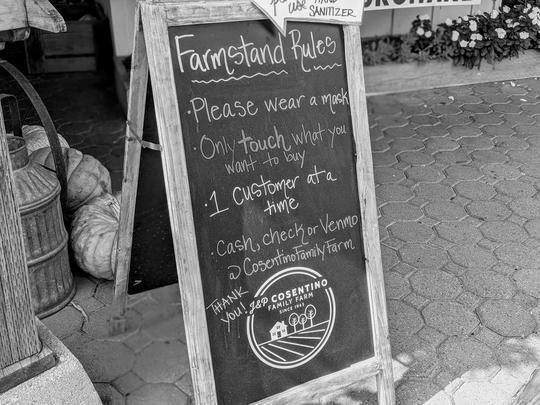 USE HAND
SANITIZER
Farmstand Rules
·Please wear a mask
·Only touch what you
want to buy
·1 customer at a
time
·Cash, check or Venmo
@CosentinoFamilyFarm
THANK
YOU!
J&P COSENTINO
FAMILY FARM
SINCE 1945